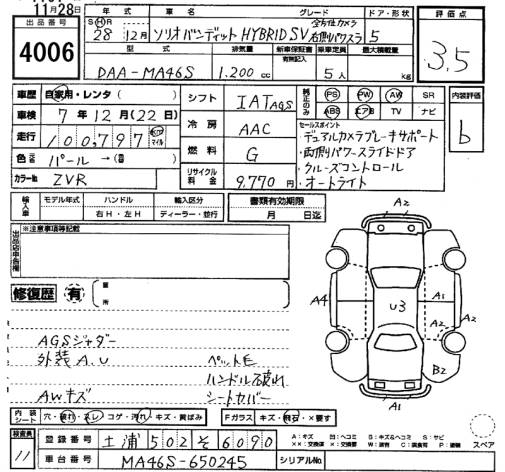 11月28日
出品番号
4006
年式 車名 グレード ドア・形状
S H R
28 12月 ソリオバンディット HYBRID SV 全方位カメラ 右側パワスラ 5
型式 排気量 新車保証書 有無記入 乗車定員 最大積載量
DAA-MA46S 1.200 cc 5人 kg
評価点
3.5
車歴 自家用・レンタ( )
車検 7年12月(22日)
走行 100,797 マイル
色 パール→( )
カラーNo ZVR
シフト IATAGS
冷房 AAC
燃料 G
リサイクル料金 9,770円
純正のみ PS PW AW SR
ABS エアB TV ナビ
セールスポイント
・デュアルカメラブレーキサポート
・両側パワースライドドア
・クルーズコントロール
・オートライト
内装評価
b
輸入車 モデル年式 ハンドル 輸入区分
右H・左H ディーラー・並行
書類有効期限
月 日迄
出品店申告欄
※注意事項等記載
修復歴 有
箇所
AGSジャダー
外装A.U ペット毛
ハンドル破れ
AWキズ シートカバー
A2
A1
A4 U3 A2 A2
A1
B2
A1
内装シート 穴・破れ・スレ・コゲ・汚れ・キズ・黄ばみ Fガラス キズ・飛石・×要す
スペア
検査員
11
登録番号 土浦 502 そ 6090
車台番号 MA46S-650245 シリアルNo.
A:キズ U:ヘコミ S:サビ